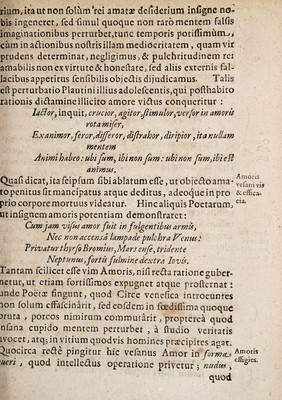 rium, ita ut non solùm rei amatæ desiderium insigne no-
bis ingeneret, sed simul quoque non rarò mentem falsis
imaginationibus perturbet, tunc temporis potissimùm,
cùm in actionibus nostris illam mediocritatem, quam vir
prudens determinat, negligimus, & pulchritudinem rei
amabilis non ex virtute & honestate, sed aliis externis fal-
lacibus appetitus sensibilis objectis dijudicamus. Talis
est perturbatio Plautini illius adolescentis, qui posthabito
rationis dictamine illicito amore victus conqueritur :
Iactor, inquit, crucior, agitor, stimulor, versor in amoris
rota miser,
Exanimor, feror, differor, distrahor, diripior, ita nullam
mentem
Animi habeo: ubi sum, ibi non sum: ubi non sum, ibi est
animus.
Quasi dicat, ita seipsum sibi ablatum esse, ut objecto ama-
to penitus sit mancipatus atque deditus, adeoque in pro-
prio corpore mortuus videatur. Hinc aliquis Poetarum,
ut insignem amoris potentiam demonstraret:
Amoris
vesani vis
& effica-
cia.
Cum jam visus amor fuit in fulgentibus armis,
Nec non accensâ lampade pulchra Venus:
Privatur thyrso Bromius, Mars ense, tridente
Neptunus, fortis fulmine dextra Iovis.
Tantam scilicet esse vim Amoris, nisi recta ratione guber-
netur, ut etiam fortissimos expugnet atque prosternat :
unde Poëtæ fingunt, quod Circe venefica introeuntes
non solum effascinârit, sed eosdem in fœdissima quoque
bruta, porcos nimirum commutârit, propterea quòd
insana cupido mentem perturbet, à studio veritatis
avocet, atq; in vitium quodvis homines præcipites agat.
Quocirca rectè pingitur hic vesanus Amor in forma
pueri, quod intellectus operatione privetur; nudus,
Amoris
effigies.
quod